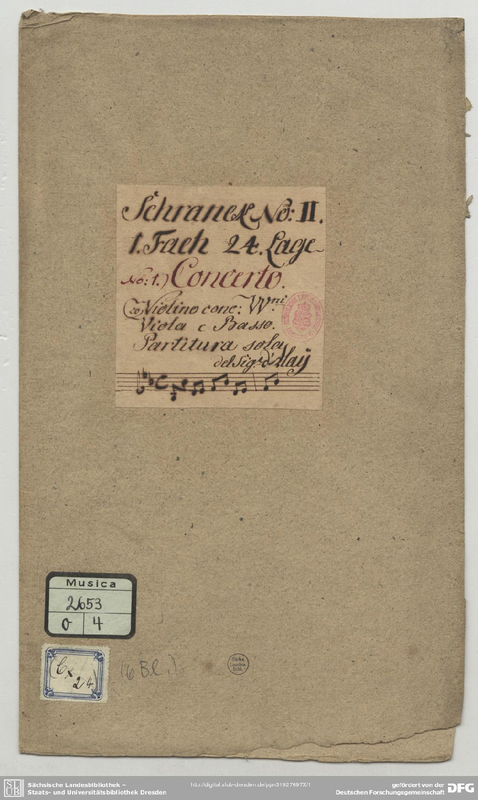 Schranck No: II.
1. Fach 24. Lage
No: 1.) Concerto.
Co Violino conc: VVni
Viola e Basso.
Partitura sola
del Sigr. d'Alaij
Musica
2653
O 4
Cx
24
(6 Bl.)
Sächsische Landesbibliothek –
Staats- und Universitätsbibliothek Dresden
gefördert von der
Deutschen Forschungsgemeinschaft
DFG